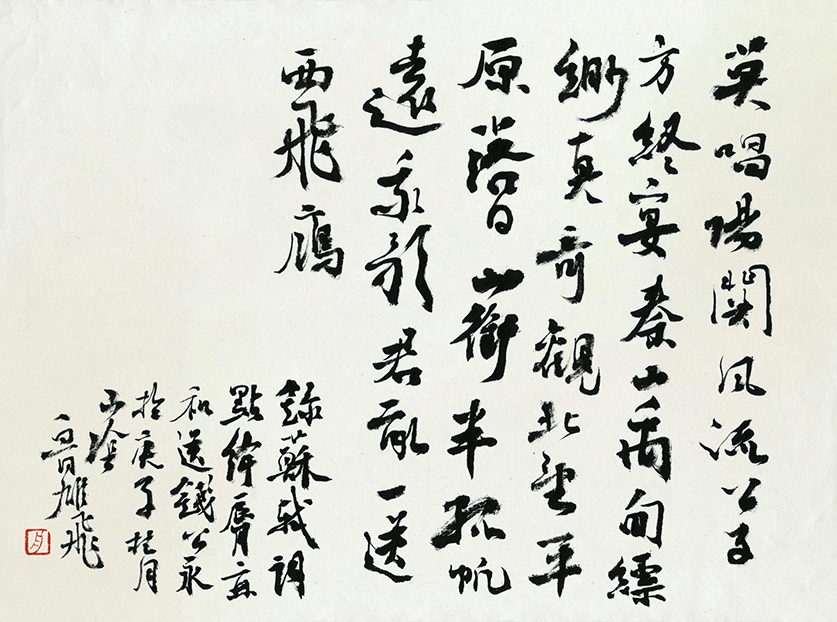 莫唱陽關風流公子
方終宴秦山禹甸縹
緲真奇觀北望平
原落日山銜半孤帆
遠我歌君亂一送
西飛鴈
錄蘇軾詞
點絳脣再
和送錢公永
於庚子桂月
山陰
魯雄飛